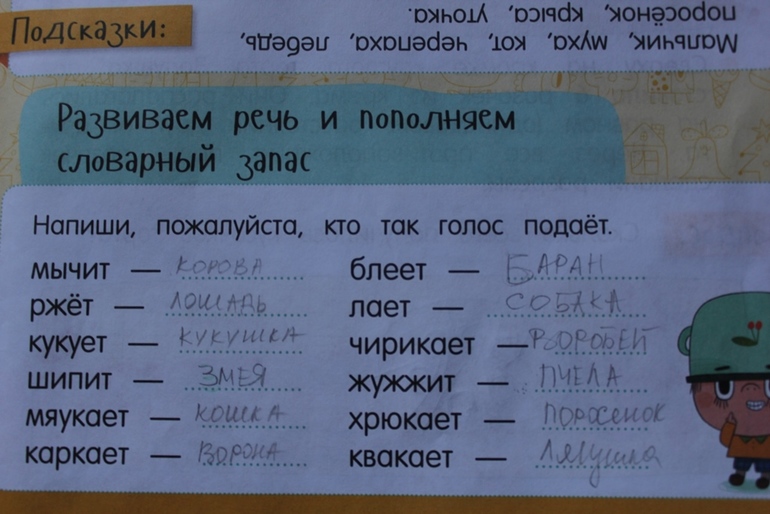 Подсказки:
Мальчик, муха, кот, черепаха, лебедь,
поросёнок, крыса, уточка.
Развиваем речь и пополняем
словарный запас
Напиши, пожалуйста, кто так голос подаёт.
мычит — КОРОВА блеет — БАРАН
ржёт — ЛОШАДЬ лает — СОБАКА
кукует — КУКУШКА чирикает — ВОРОБЕЙ
шипит — ЗМЕЯ жужжит — ПЧЕЛА
мяукает — КОШКА хрюкает — ПОРОСЕНОК
каркает — ВОРОНА квакает — Лягушка